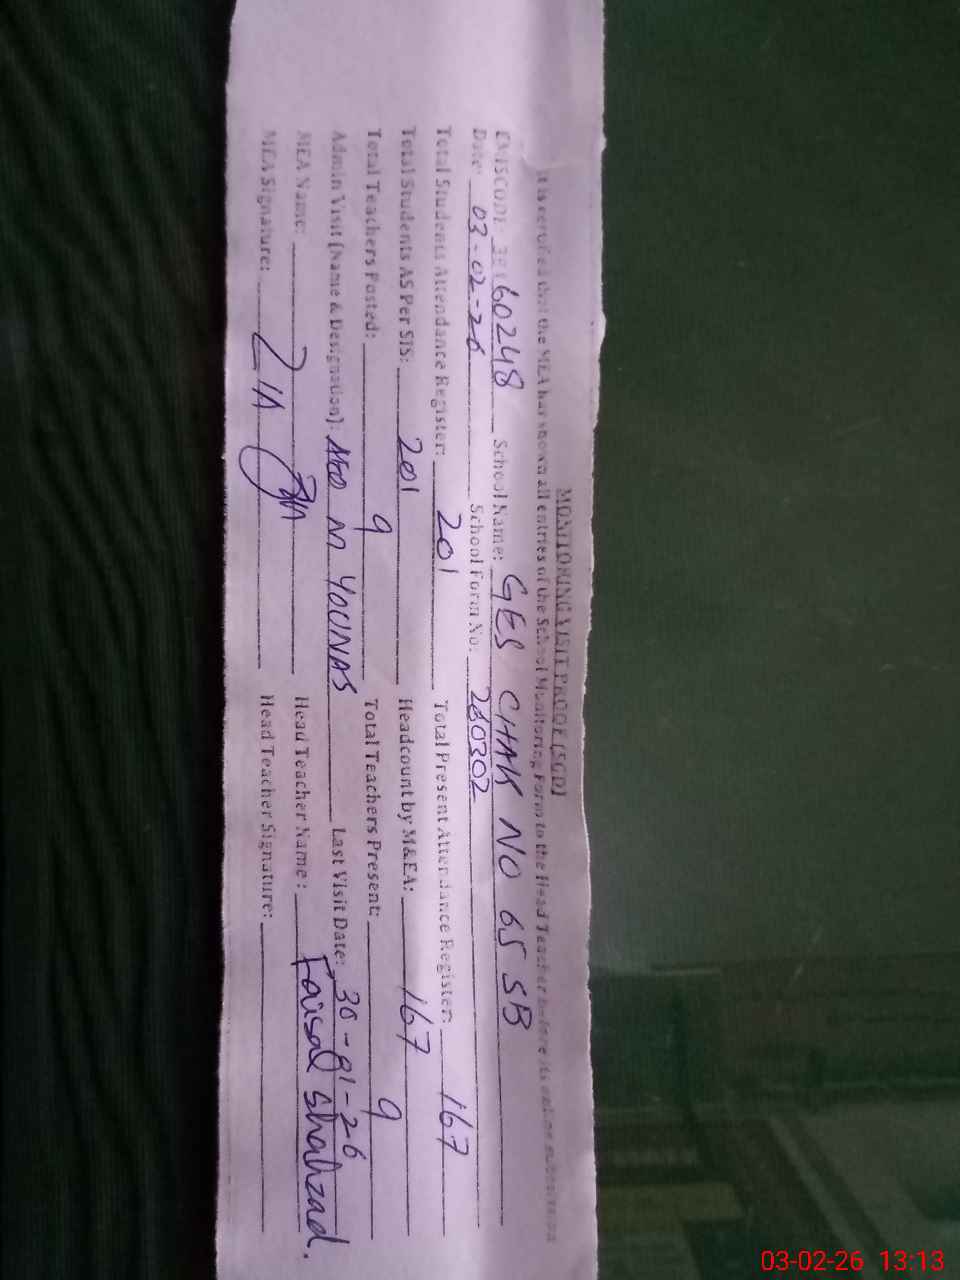 MONITORING VISIT PROOF (SGD)
It is certified that the MEA has shown all entries of the School Monitoring Form to the Head Teacher before its online submission
EMISCODE: 38160248 School Name: GES CHAK NO 65 SB
Date: 03-02-26 School Form No: 280302
Total Students Attendance Register: 201 Total Present Attendance Register: 167
Total Students AS Per SIS: 201 Headcount by M&EA: 167
Total Teachers Posted: 9 Total Teachers Present: 9
Admin Visit (Name & Designation): AEO M YOUNAS Last Visit Date: 30-01-26
MEA Name: Head Teacher Name: Faisal Shahzad.
MEA Signature: Head Teacher Signature:
03-02-26 13:13